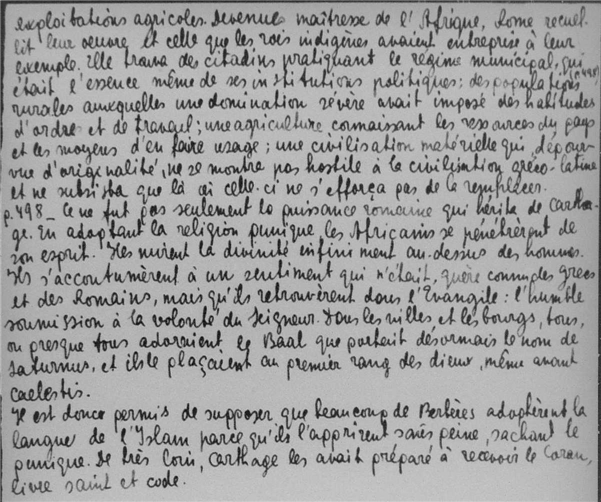 exploitations agricoles. Devenue maîtresse de l'Afrique, Rome recueil-
lit leur oeuvre et celle que les rois indigènes avaient entreprise à leur
exemple. Elle trouva des citadins pratiquant le régime municipal, qui
était l'essence même de ses institutions politiques ; des populations (p.498)
rurales auxquelles une domination sévère avait imposé des habitudes
d'ordre et de travail ; une agriculture connaissant les ressources du pays
et les moyens d'en faire usage ; une civilisation matérielle qui, dépour-
vue d'originalité, ne se montra pas hostile à la civilisation gréco-latine
et ne subsista que là où celle-ci ne s'efforça pas de la remplacer.
p.498 _ Ce ne fut pas seulement la puissance romaine qui hérita de Cartha-
ge. En adoptant la religion punique les Africains se pénétrèrent de
son esprit. Ils mirent la divinité infiniment au-dessus des hommes.
Ils s'accoutumèrent à un sentiment qui n'était guère connu des Grecs
et des Romains, mais qu'ils retrouvèrent dans l'Evangile : l'humble
soumission à la volonté du Seigneur. Dans les villes et les bourgs, tous,
ou presque tous adoraient le Baal que portait désormais le nom de
Saturnus, et ils le plaçaient au premier rang des dieux, même avant
Caelestis.
Il est donc permis de supposer que beaucoup de Berbères adoptèrent la
langue de l'Islam parce qu'ils l'apprirent sans peine, sachant le
punique. De très loin, Carthage les avait préparé à recevoir le Coran,
livre saint et code.